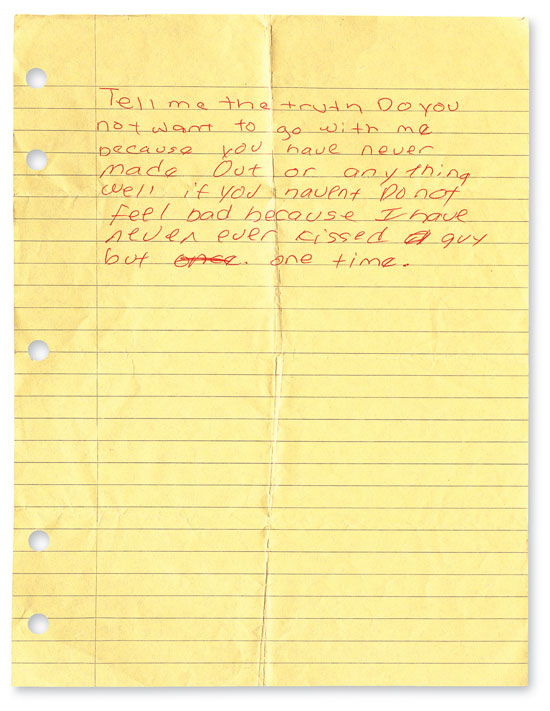 Tell me the truth Do you
not want to go with me
because you have never
made Out or any thing
well if you havent Do not
feel bad because I have
never ever kissed a guy
but once. one time.